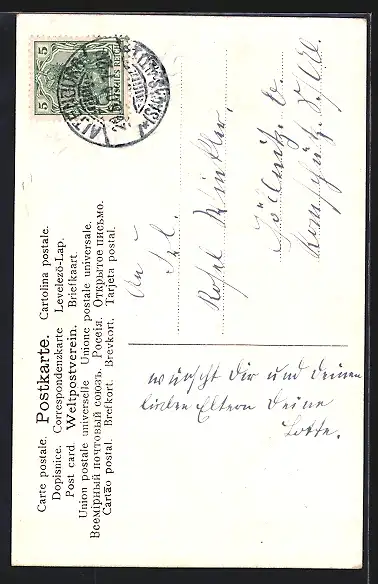 Carte postale. Postkarte. Cartolina postale.
Dopisnice. Correspondenzkarte Levelező-Lap.
Post card. Weltpostverein. Briefkaart
Union postale universelle Unione postale universale.
Всемірный почтовый союзъ. Россія. Открытое письмо.
Cartão postal. Brefkort. Brevkort. Tarjeta postal.
5
5
DEUTSCHES REICH
ALTENBURG
(SACHSEN)
An
Frl.
Rosel Winkler,
wünscht Dir und deinen
lieben Eltern Deine
Lotte.